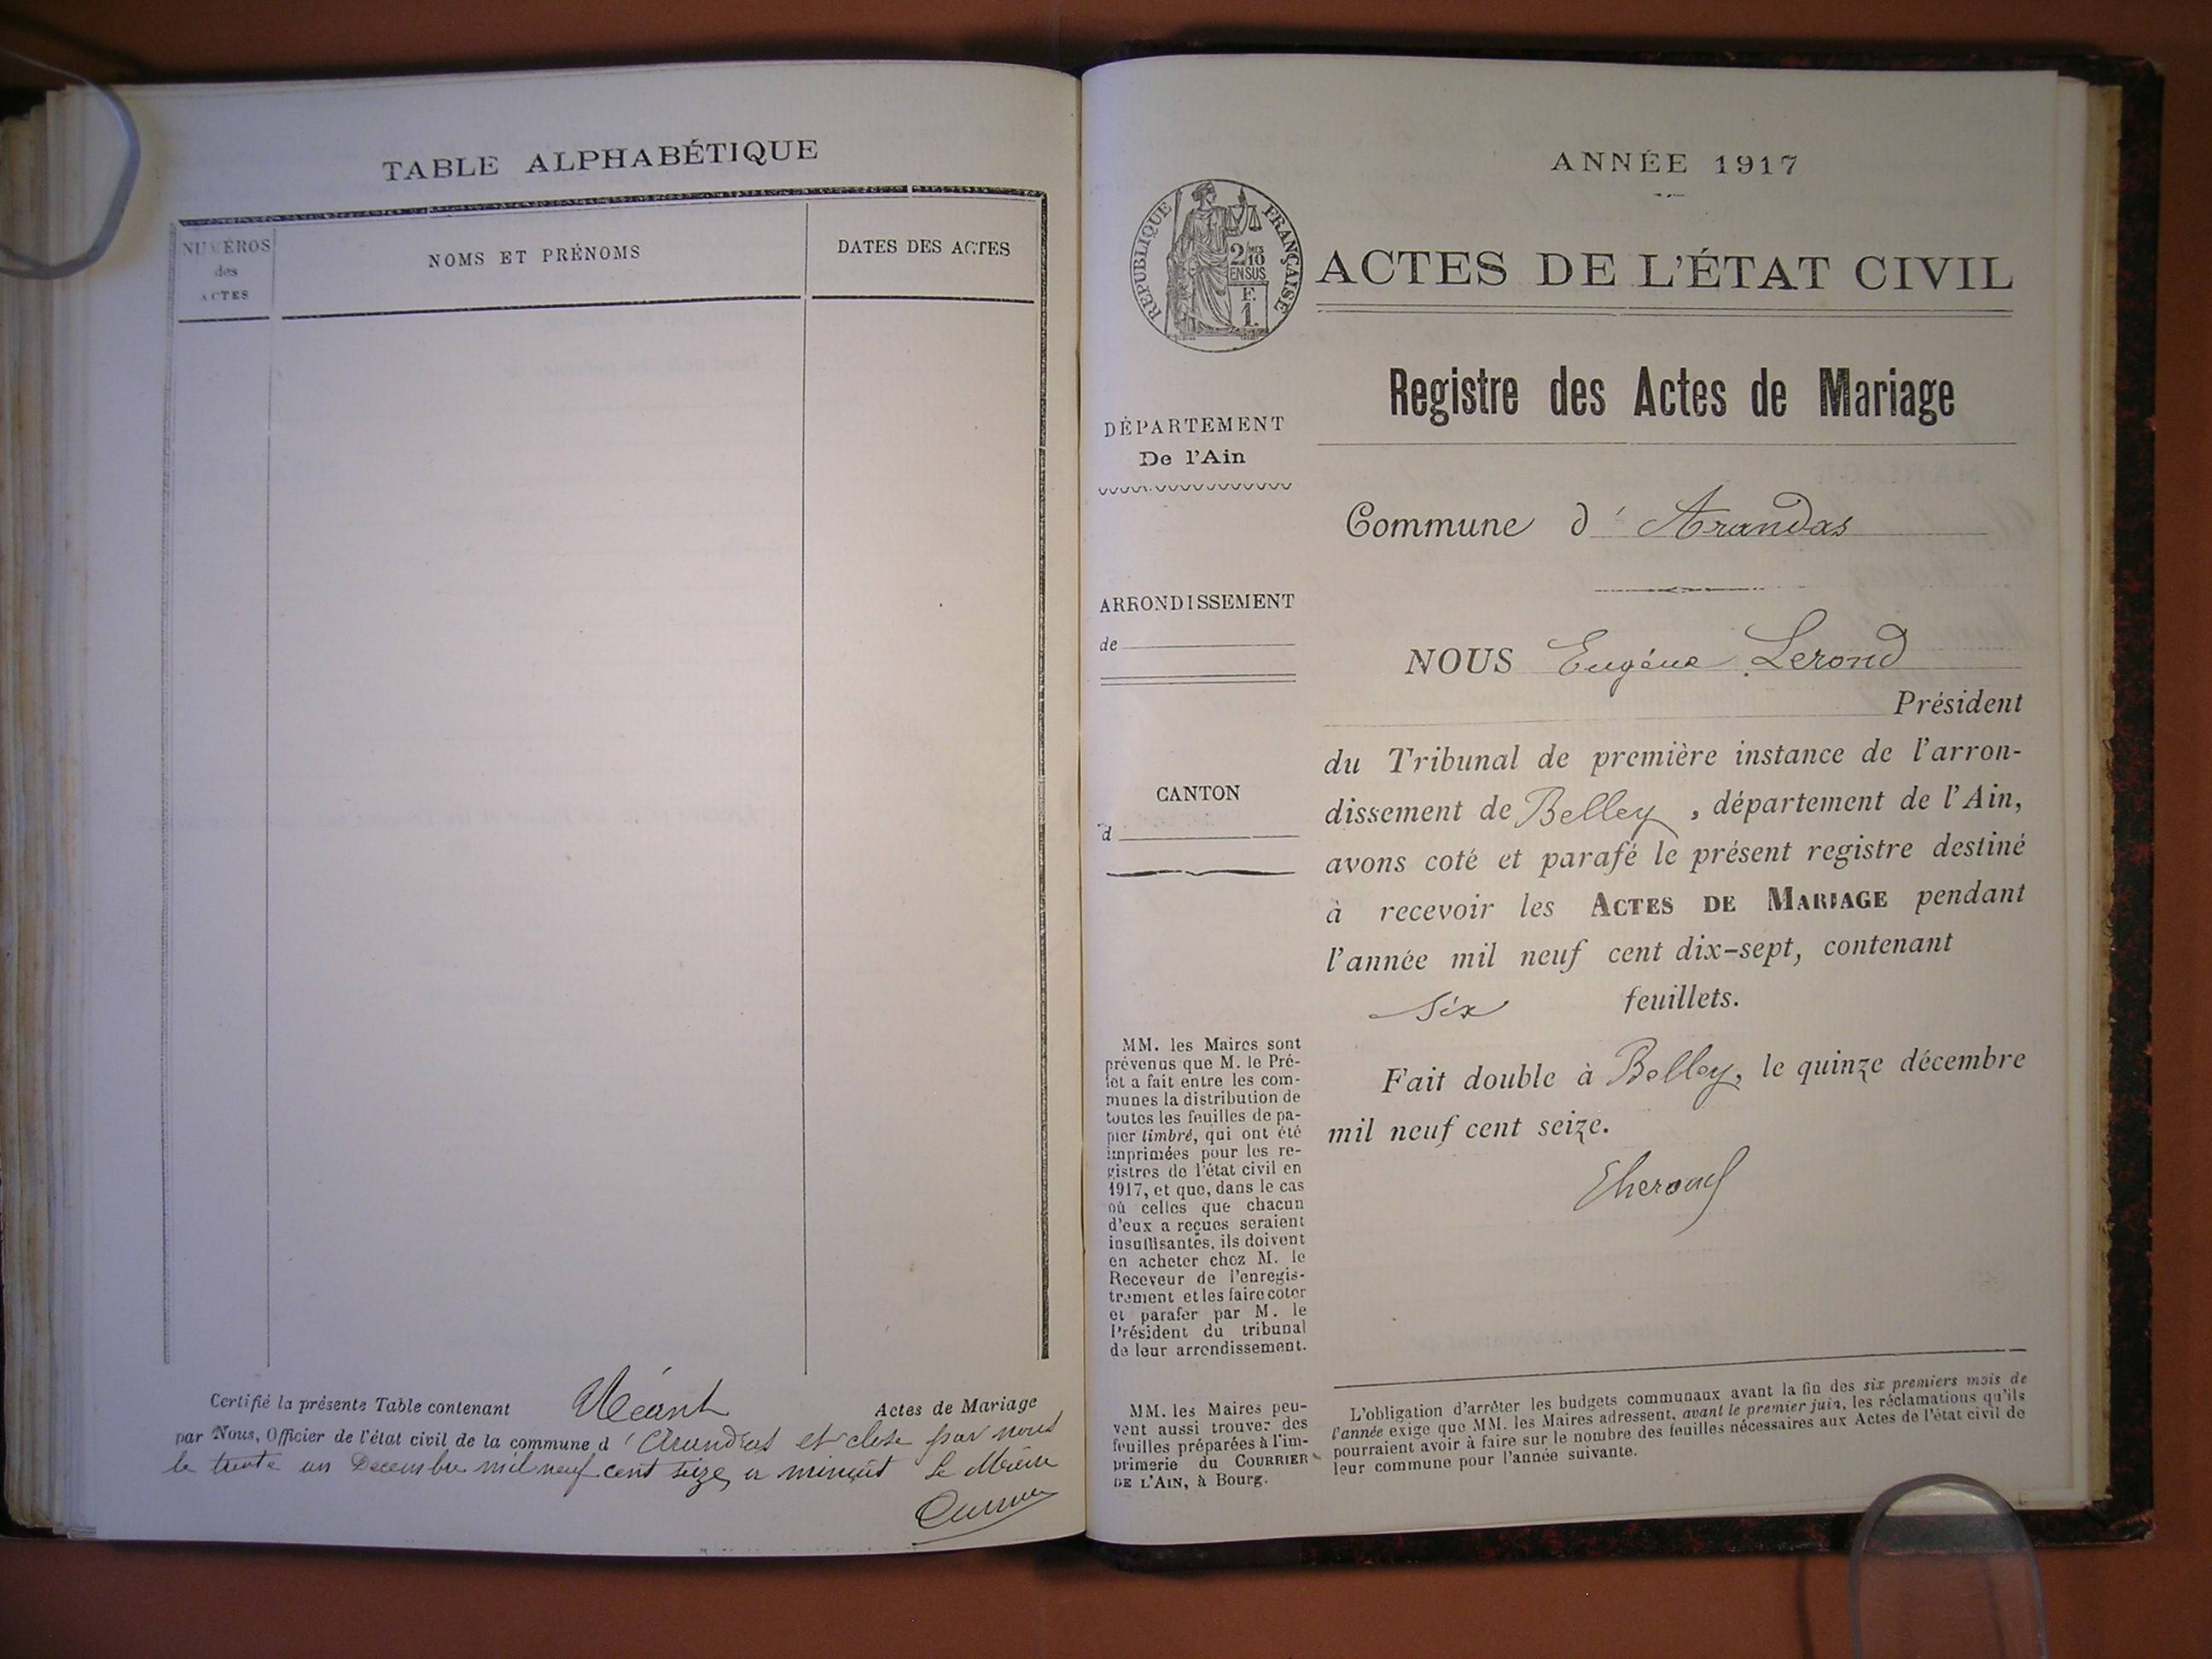 TABLE ALPHABÉTIQUE
NUMÉROS
des
ACTES
NOMS ET PRÉNOMS
DATES DES ACTES
Certifié la présente Table contenant Néant Actes de Mariage
par Nous, Officier de l'état civil de la commune d 'Arandas et close par nous
le trente un Decembre mil neuf cent seize, a minuit Le Maire
ANNÉE 1917
RÉPUBLIQUE FRANÇAISE
2/MES
10
EN SUS
F.
1.
ACTES DE L'ÉTAT CIVIL
Registre des Actes de Mariage
DÉPARTEMENT
De l'Ain
Commune d' Arandas
ARRONDISSEMENT
de
CANTON
d
NOUS Eugène Lerond
Président
du Tribunal de première instance de l'arron-
dissement de Belley, département de l'Ain,
avons coté et parafé le présent registre destiné
à recevoir les ACTES DE MARIAGE pendant
l'année mil neuf cent dix-sept, contenant
six feuillets.
Fait double à Belley, le quinze décembre
mil neuf cent seize.
MM. les Maires sont
prévenus que M. le Pré-
fet a fait entre les com-
munes la distribution de
toutes les feuilles de pa-
pier timbré, qui ont été
imprimées pour les re-
gistres de l'état civil en
1917, et que, dans le cas
où celles que chacun
d'eux a reçues seraient
insuffisantes, ils doivent
en acheter chez M. le
Receveur de l'enregis-
trement et les faire coter
et parafer par M. le
Président du tribunal
de leur arrondissement.
MM. les Maires peu-
vent aussi trouver des
feuilles préparées à l'im-
primerie du COURRIER
DE L'AIN, à Bourg.
L'obligation d'arrêter les budgets communaux avant la fin des six premiers mois de
l'année exige que MM. les Maires adressent, avant le premier juin, les réclamations qu'ils
pourraient avoir à faire sur le nombre des feuilles nécessaires aux Actes de l'état civil de
leur commune pour l'année suivante.